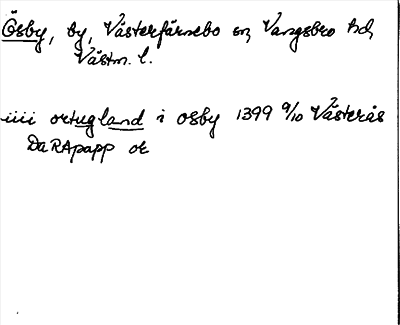 Ösby, by, Västerfärnebo sn, Vangsbro hd,
Västm. l.
iiii ortugland i osby 1399 9/10 Västerås
Da RApapp or